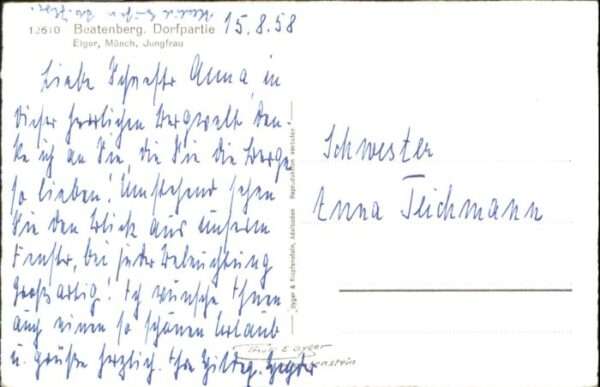 15.8.58
12610 Beatenberg. Dorfpartie
Eiger, Mönch, Jungfrau
Liebe Schwester Anna, in
dieser herrlichen Bergwelt den-
ke ich an Sie, die Sie die Berge
so lieben! Umstehend sehen
Sie den Blick aus unserm
Fenster, bei jeder Beleuchtung
großartig! Ich wünsche Ihnen
auch einen so schönen Urlaub
u. grüße herzlich. Ihre Hildeg.
Schwester
Anna Teichmann